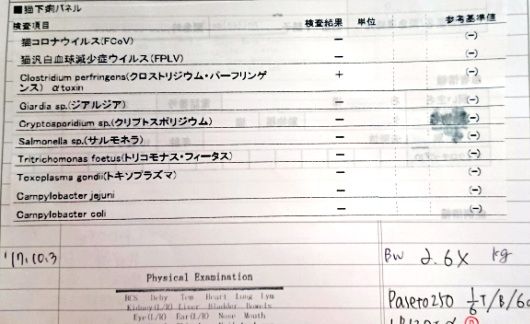 ■猫下痢パネル
検査項目 検査結果 単位 参考基準値
猫コロナウイルス(FCoV) − (−)
猫汎白血球減少症ウイルス(FPLV) − (−)
Clostridium perfringens(クロストリジウム・パーフリンゲンス) αtoxin + (−)
Giardia sp.(ジアルジア) − (−)
Cryptosporidium sp.(クリプトスポリジウム) − (−)
Salmonella sp.(サルモネラ) − (−)
Tritrichomonas foetus(トリコモナス・フィータス) − (−)
Toxoplasma gondii(トキソプラズマ) − (−)
Campylobacter jejuni − (−)
Campylobacter coli − (−)
'17.10.3
Physical Examination
BCS Dehy Tem Heart Lung Lym
Kidney(L/R) Liver Bladder Bowels
Eye(L/R) Ear(L/R) Nose Mouth
BW 2.6X kg
Pasero250 1/6 T/B/6d